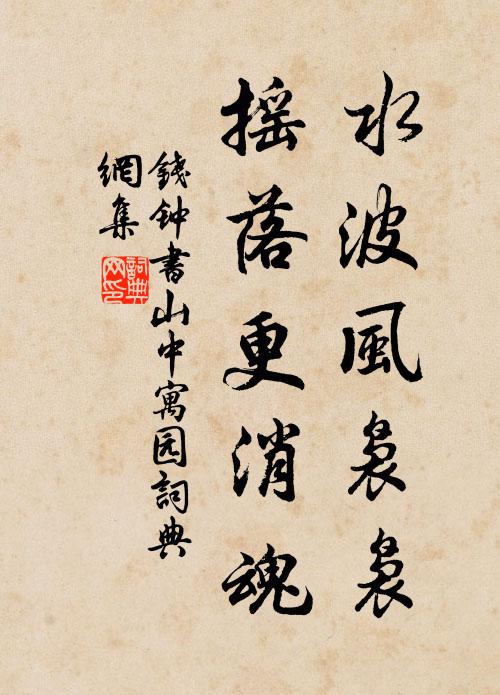 水波風袅袅
摇落更消魂
錢钟書山中寓园詞典
網集
詞典
网印